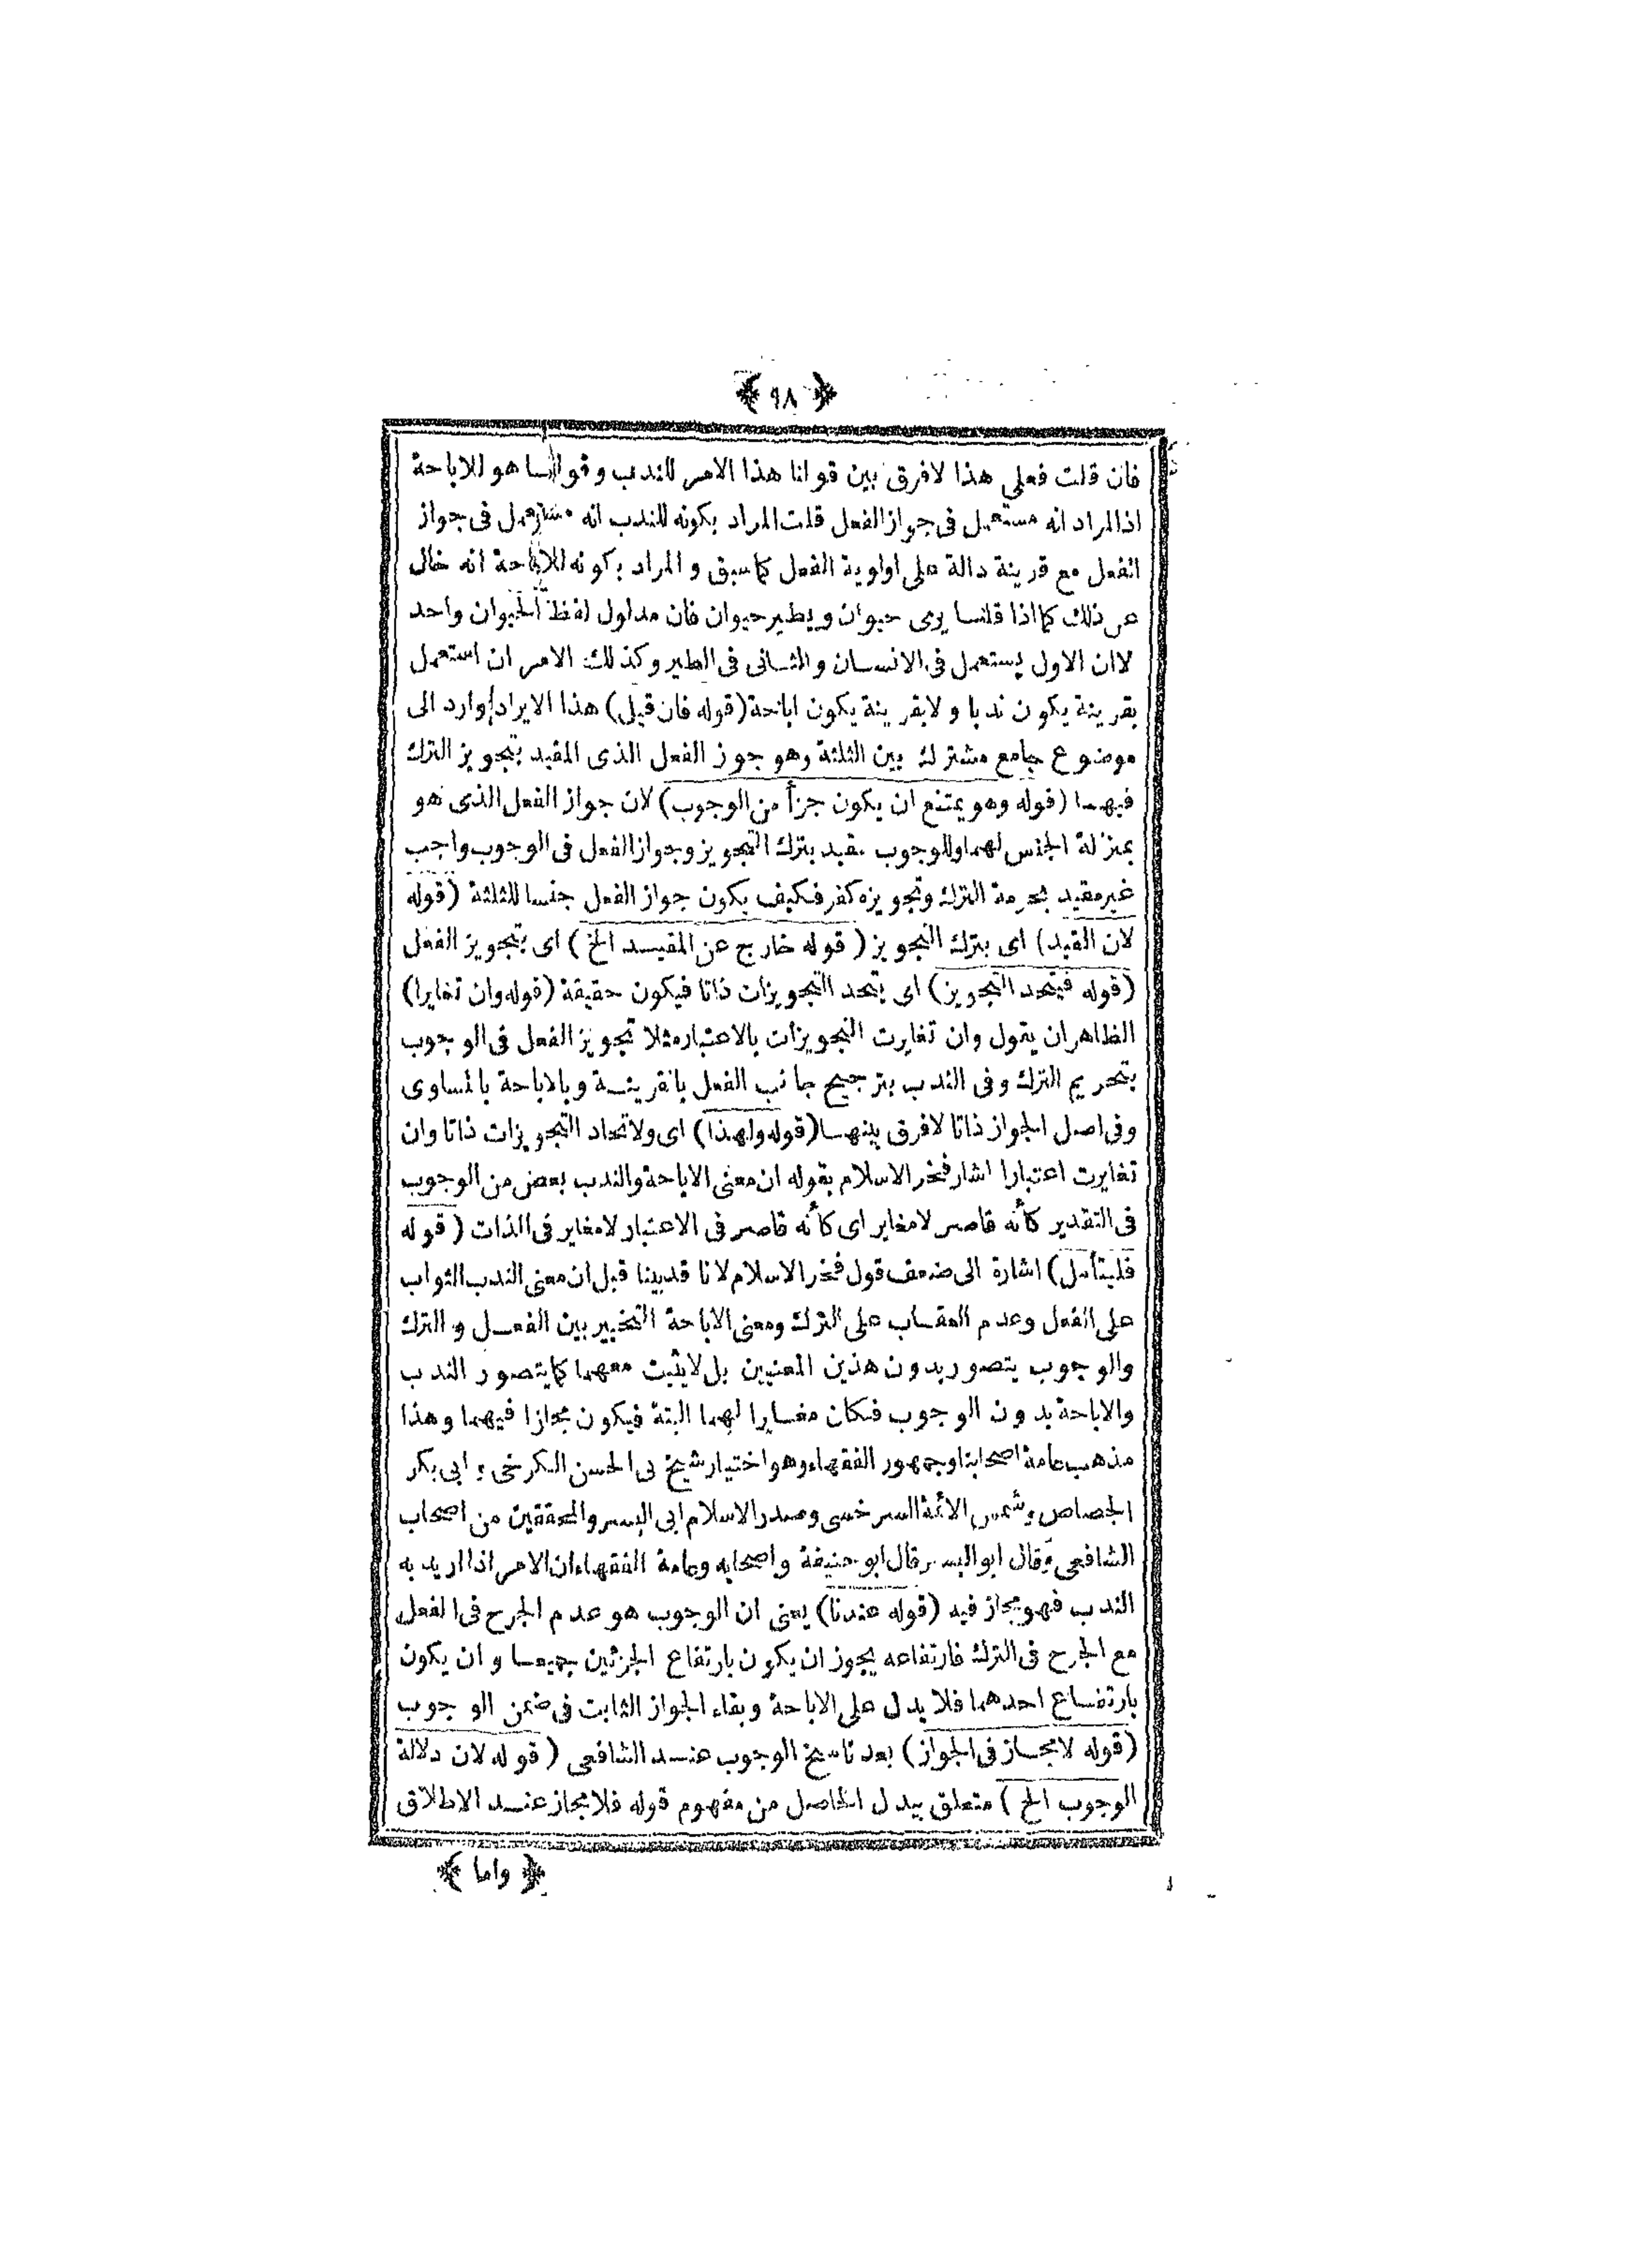 ﴿ ٩٨ ﴾
فان قلت فعلى هذا لافرق بين قولنا هذا الامر للندب وقولنا هو للاباحة
اذالمراد انه مستعمل فى جوازالفعل قلت المراد بكونه للندب انه مستعمل فى جواز
الفعل مع قرينة دالة على اولوية الفعل كاسبق و المراد بكونه للاباحة انه خال
عن ذلك كما اذا قلنا يرمى حيوان ويطير حيوان فان مدلول لفظ الحيوان واحد
لا ان الاول يستعمل فى الانسان والثانى فى الطير وكذلك الامر ان استعمل
بقرينة يكون ندبا و لابقرينة يكون اباحة (قوله فان قيل) هذا الايراد وارد الى
موضوع جامع مشترك بين الثلثة وهو جوز الفعل الذى المقيد بتجويز الترك
فيهما (قوله وهو يمتنع ان يكون جزأ من الوجوب) لان جواز الفعل الذى هو
بمنزلة الجنس لهما وللوجوب مقيد بترك التجويز وجواز الفعل فى الوجوب واجب
غير مقيد بحرمة الترك وتجويزه كفر فكيف يكون جواز الفعل جنسا للثلثة (قوله
لان القيد) اى بترك التجويز (قوله خارج عن المقيد الخ) اى بتجويز الفعل
(قوله فيتحد التجويز) اى يتحد التجويزات ذاتا فيكون حقيقة (قوله وان تغايرا)
الظاهر ان يقول وان تغايرت التجويزات بالاعتبار مثلا تجويز الفعل فى الوجوب
بتحريم الترك وفى الندب بترجيح جانب الفعل بالقرينة وبالاباحة بالتساوى
وفى اصل الجواز ذاتا لافرق بينهما (قوله ولهذا) اى ولاتحاد التجويزات ذاتا وان
تغايرت اعتبارا اشار فخر الاسلام بقوله ان معنى الاباحة والندب بعض من الوجوب
فى التقدير كأنه قاصر لامغاير اى كأنه قاصر فى الاعتبار لامغاير فى الذات (قوله
فليتأمل) اشارة الى ضعف قول فخر الاسلام لانا قدبينا قبل ان معنى الندب الثواب
على الفعل وعدم العقاب على الترك ومعنى الاباحة التخيير بين الفعل و الترك
والوجوب يتصور بدون هذين المعنيين بل لايثبت معهما كما يتصور الندب
والاباحة بدون الوجوب فكان مغايرا لهما البتة فيكون مجازا فيهما وهذا
مذهب عامة اصحابنا وجمهور الفقهاء وهو اختيار شيخ بى الحسن الكرخى و ابى بكر
الجصاص وشمس الائمة السرخسى وصدر الاسلام ابى اليسر والمحققين من اصحاب
الشافعى وقال ابو اليسر قال ابو حنيفة واصحابه وعامة الفقهاء ان الامر اذا اريد به
الندب فهو مجاز فيه (قوله عندنا) يعنى ان الوجوب هو عدم الحرج فى الفعل
مع الحرج فى الترك فارتفاعه يجوز ان يكون بارتفاع الجزئين جميعا و ان يكون
بارتفاع احدهما فلا يدل على الاباحة وبقاء الجواز الثابت فى ضمن الوجوب
(قوله لامجاز فى الجواز) بعد ناسخ الوجوب عند الشافعى (قوله لان دلالة
الوجوب الخ) متعلق ببدل الحاصل من مفهوم قوله فلامجاز عند الاطلاق
﴿ واما ﴾